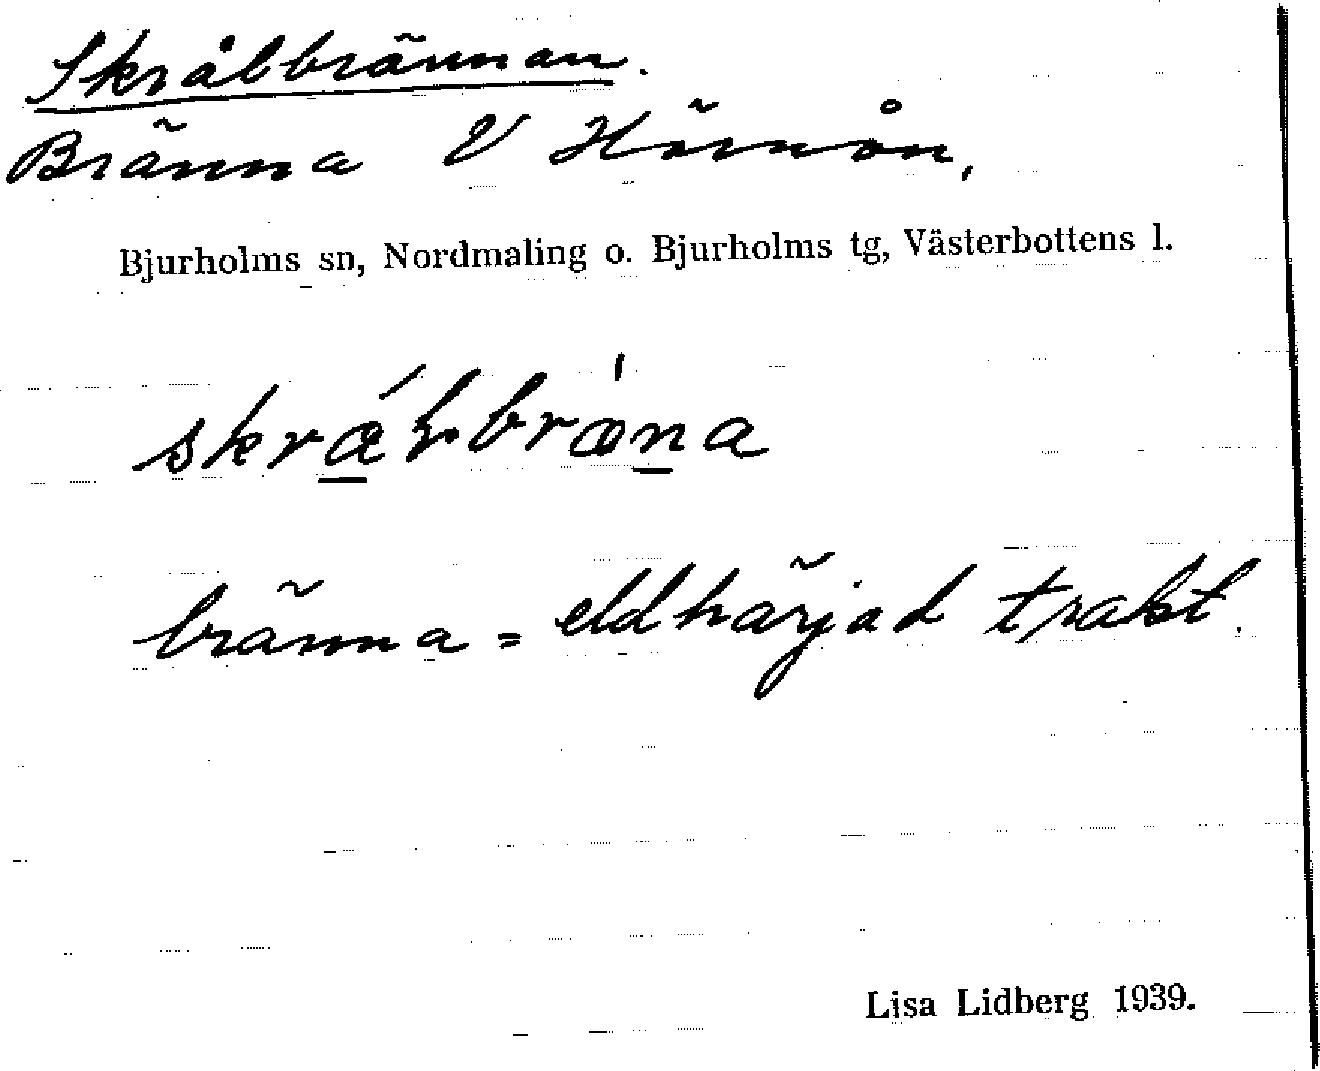 Skrålbrännan.
Bränna V Hörnån,
Bjurholms sn, Nordmaling o. Bjurholms tg, Västerbottens l.
bränna = eldhärjad trakt.
Lisa Lidberg 1939.